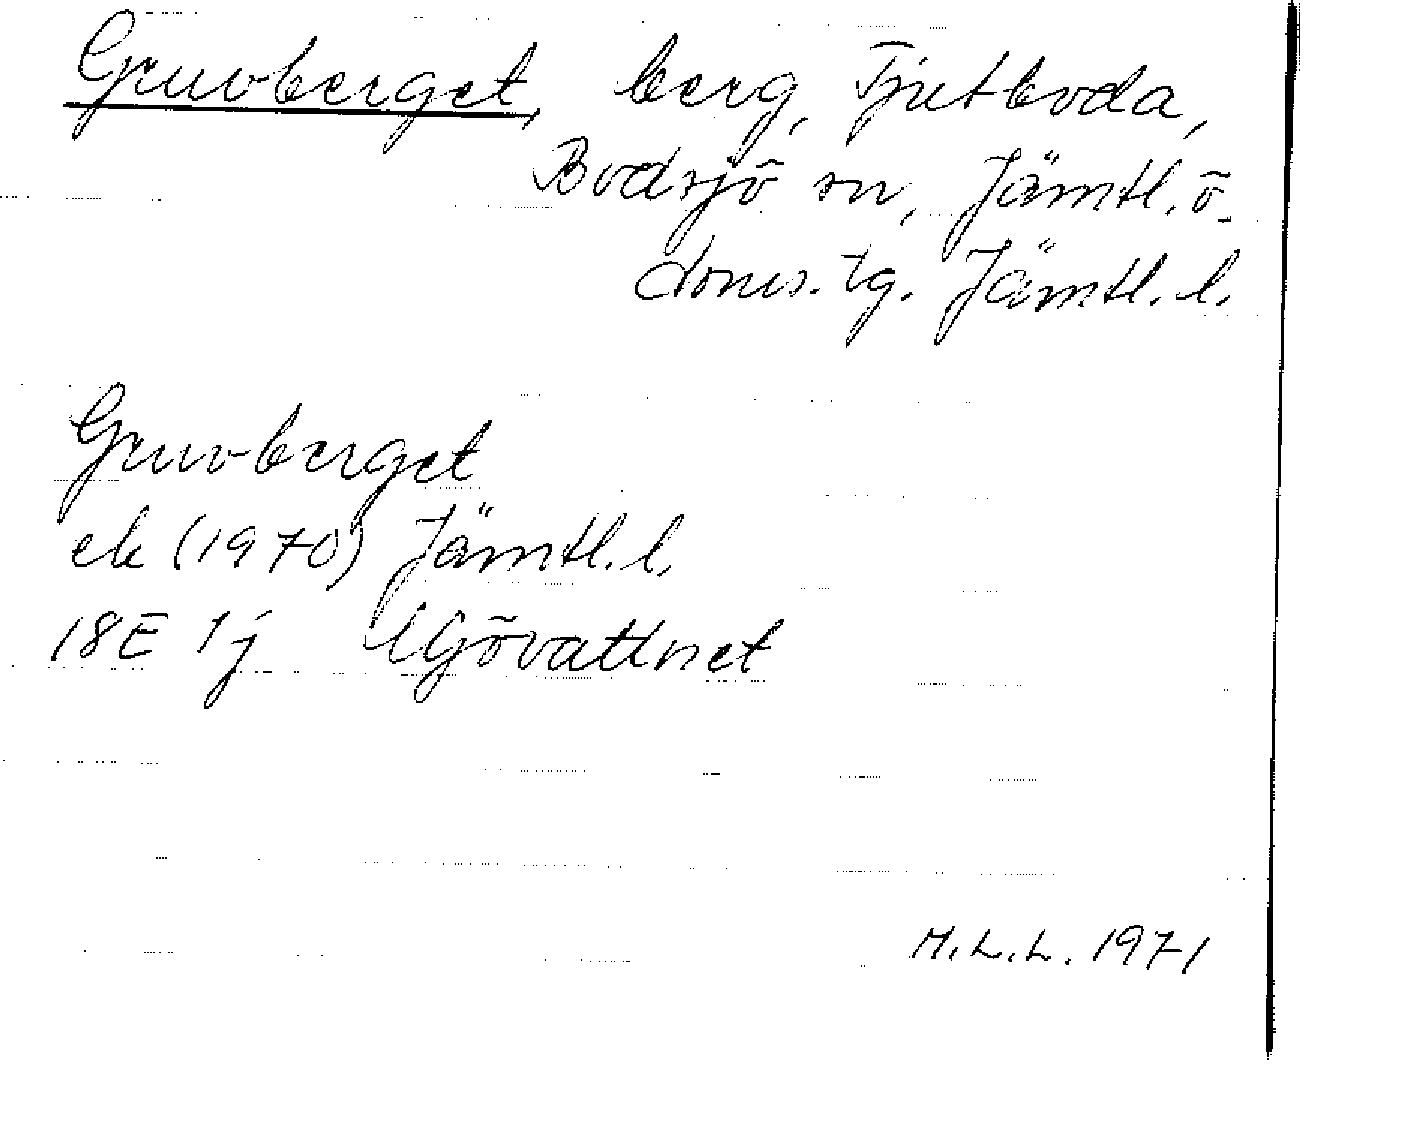 Gruvberget, berg, Fjutboda,
Bodsjö sn, Jämtl. ö.
doms. tg. Jämtl. l.
Gruvberget
ek (1970) Jämtl. l.
18E 1j Lögövattnet
M.L.L. 1971